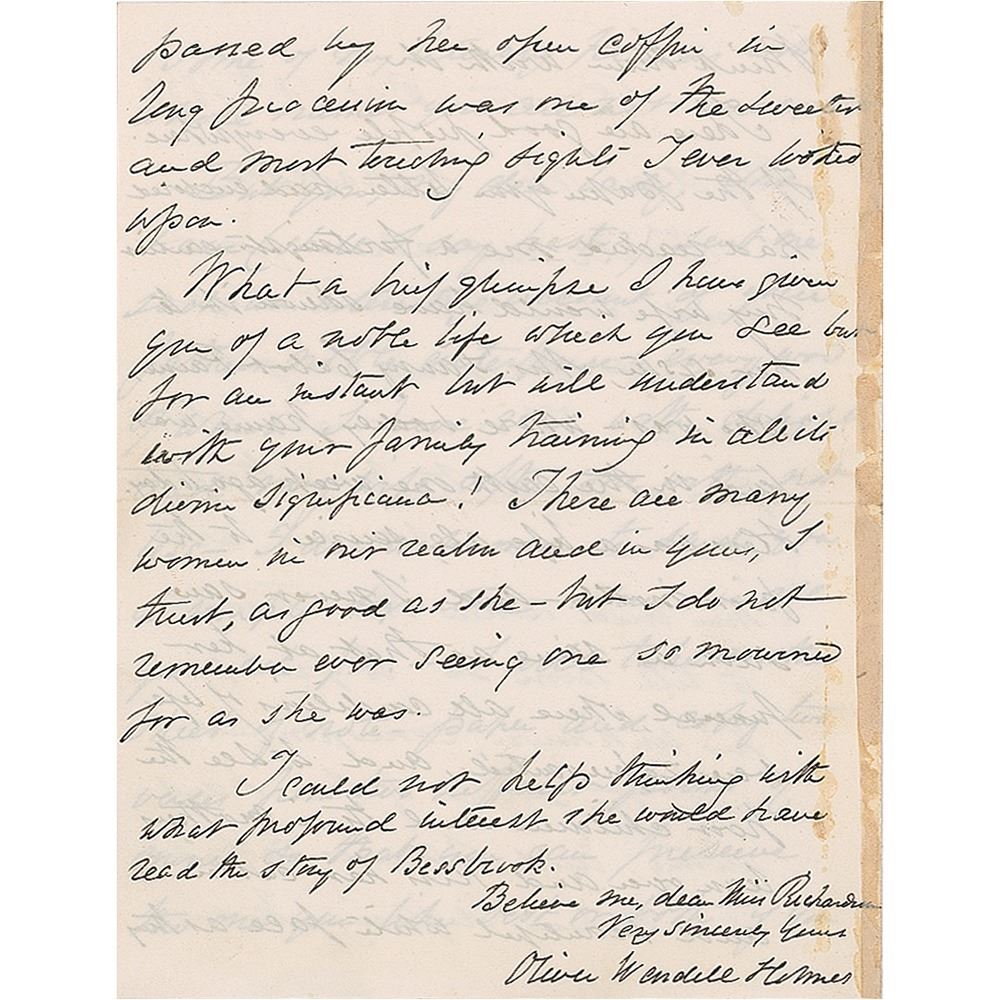 passed by her open coffin in
long procession was one of the sweetest
and most touching sights I ever looked
upon.
What a brief glimpse I have given
you of a noble life which you see but
for an instant but will understand
with your family training in all its
divine significance! There are many
women in our realm and in yours, I
trust, as good as she – but I do not
remember ever seeing one so mourned
for as she was.
I could not help thinking with
what profound interest she would have
read the story of Bessbrook.
Believe me, dear Miss Richardson
Very sincerely yours
Oliver Wendell Holmes